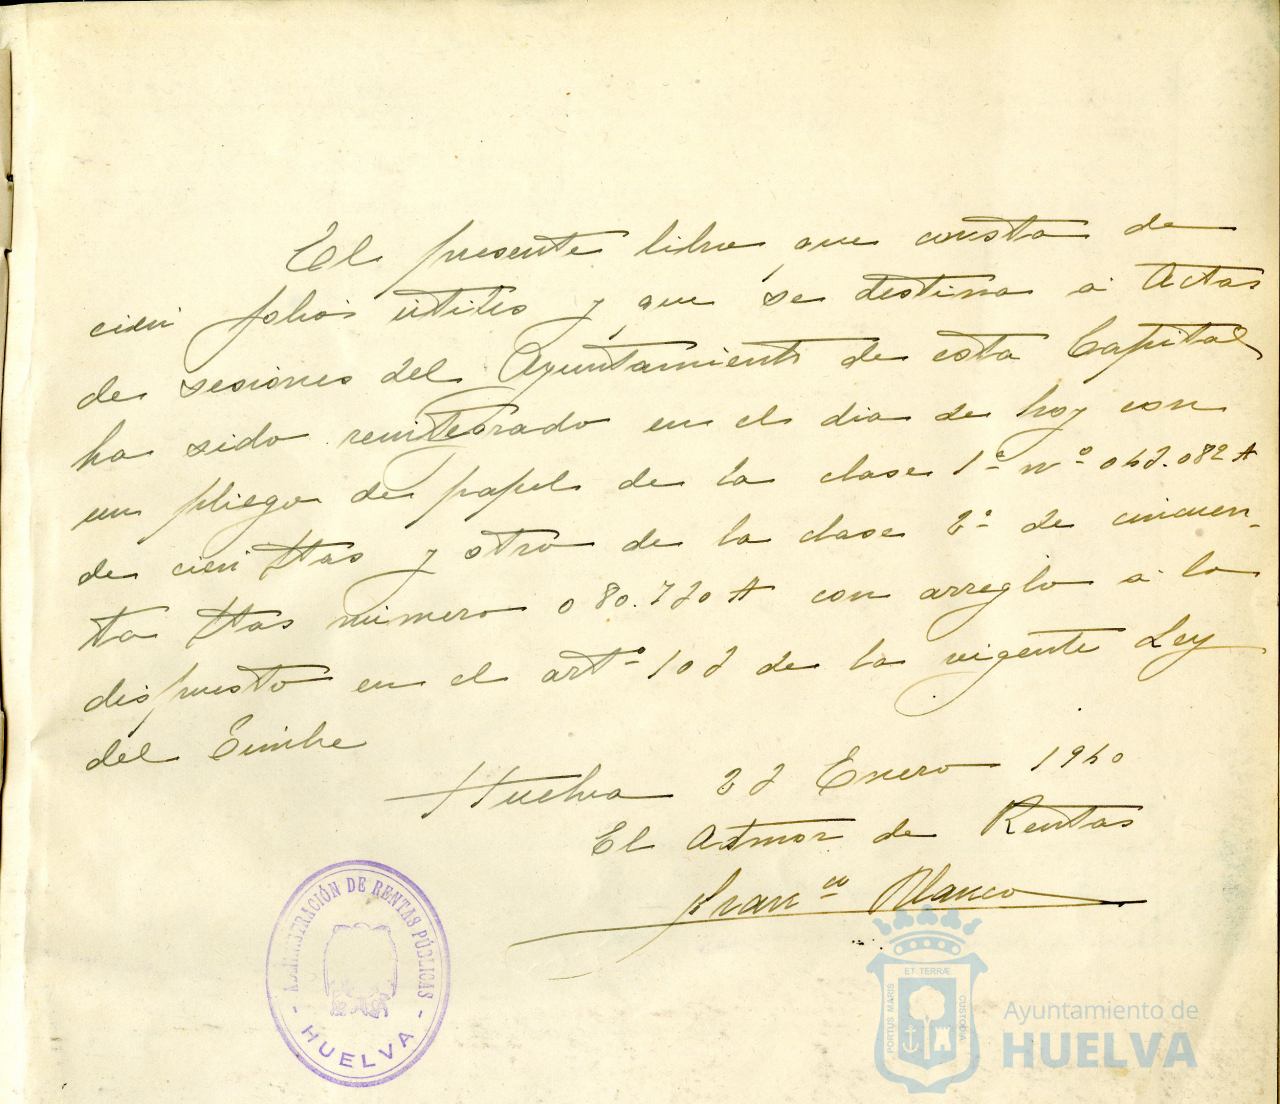 El presente libro que consta de
cien folios útiles y que se destina a Actas
de sesiones del Ayuntamiento de esta Capital
ha sido reintegrado en el dia de hoy con
un pliego de papel de la clase 1ª nº 042.082 A
de cien ptas y otro de la clase 2ª de cincuen-
ta ptas numero 080.720 A con arreglo a lo
dispuesto en el artº 102 de la vigente Ley
del Timbre
Huelva 22 Enero 1940
El Admor de Rentas
Franco Blanco
ADMINISTRACIÓN DE RENTAS PÚBLICAS
- HUELVA -
PORTUS MARIS
ET TERRÆ
CUSTODIA
Ayuntamiento de
HUELVA